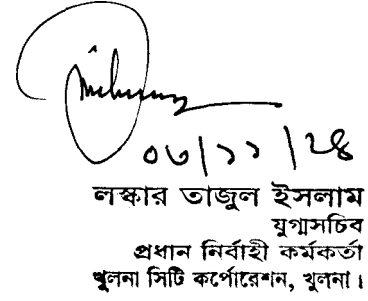 ০৩/১১/২৪
লস্কার তাজুল ইসলাম
যুগ্মসচিব
প্রধান নির্বাহী কর্মকর্তা
খুলনা সিটি কর্পোরেশন, খুলনা।